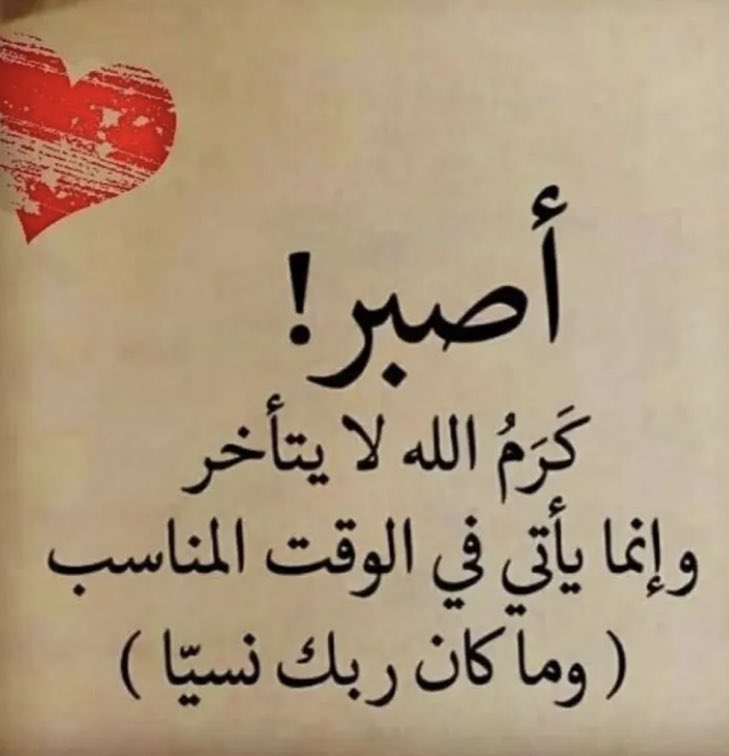 أصبر!
كَرَمُ الله لا يتأخر
وإنما يأتي في الوقت المناسب
( وما كان ربك نسيّا )